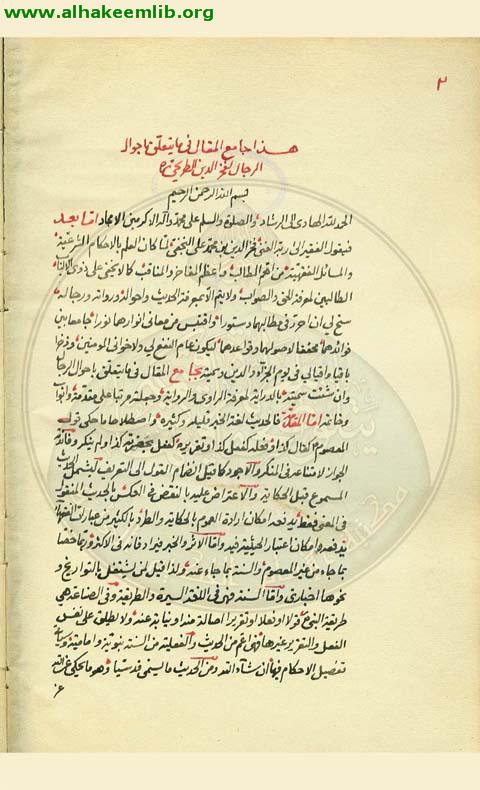 www.alhakeemlib.org
٢
هذا جامع المقال فى ما يتعلق باحوال
الرجال لفخر الدين الطريحى ره
بسم الله الرحمن الرحيم
الحمد لله الهادى الى الرشاد والصلوة والسلم على محمد وآله الاكرمين الامجاد اما بعد
فيقول الفقير الى ربه الغنى فخر الدين بن محمد على النجفى لما كان العلم بالاحكام الشرعية
والمسائل الفقهية من اهم المطالب واعظم المفاخر والمناقب كما لا يخفى على ذوى الالباب
الطالبين لمعرفة الحق والصواب ولا يتم الا بمعرفة الحديث واحواله ورواته ورجاله
سنح لى ان احرر فى مطالبهما دستورا واقتبس من معانى انوارهما نورا جامعا بين
فوائدهما محققا لاصولهما وقواعدهما ليكون عام النفع لى ولاخوانى المومنين وذخرا
باقيا وافيا لى فى يوم الجزاء والدين وسميته بجامع المقال فى ما يتعلق باحوال الرجال
وان شئت سميته بالدراية لمعرفة الراوى والرواية وجعلته مرتبا على مقدمة وابواب
وخاتمة اما المقدمة فالحديث لغة الخبر قليله وكثيره واصطلاحا ما حكى قول
المعصوم كقال كذا او فعله كفعل كذا او تقريره كفعل بحضرته كذا ولم ينكر وفائدة
المسموع قبل الحكاية والاعتراض عليه بالنقض فى العكس بالحديث المنقول
فى المعنى فقط يدفعه امكان ارادة العموم بالحكاية والطرد بالكثير من عبارات الفقهاء
يدفعه امكان اعتبار الحيثية فيه واما الاثر والخبر فيرادفانه فى الاكثر وربما خصا
بما جاء من غير المعصوم والسنة بما جاء عنه ولذا قيل لمن يشتغل بالتواريخ و
نحوها اخبارى واما السنة فهى فى اللغة السيرة والطريقة وفى الصناعة هى
طريقة النبى قولا او فعلا او تقريرا اصالة منه او نيابة عنه ولا يطلق على نفس
الفعل والتقرير غيرها فهى اعم من الحديث والفعلية من السنة نبوية وامامية
تفصيل الاحكام فيها ان شاء الله ومن الحديث ما يسمى قدسيا وهو ما يحكى